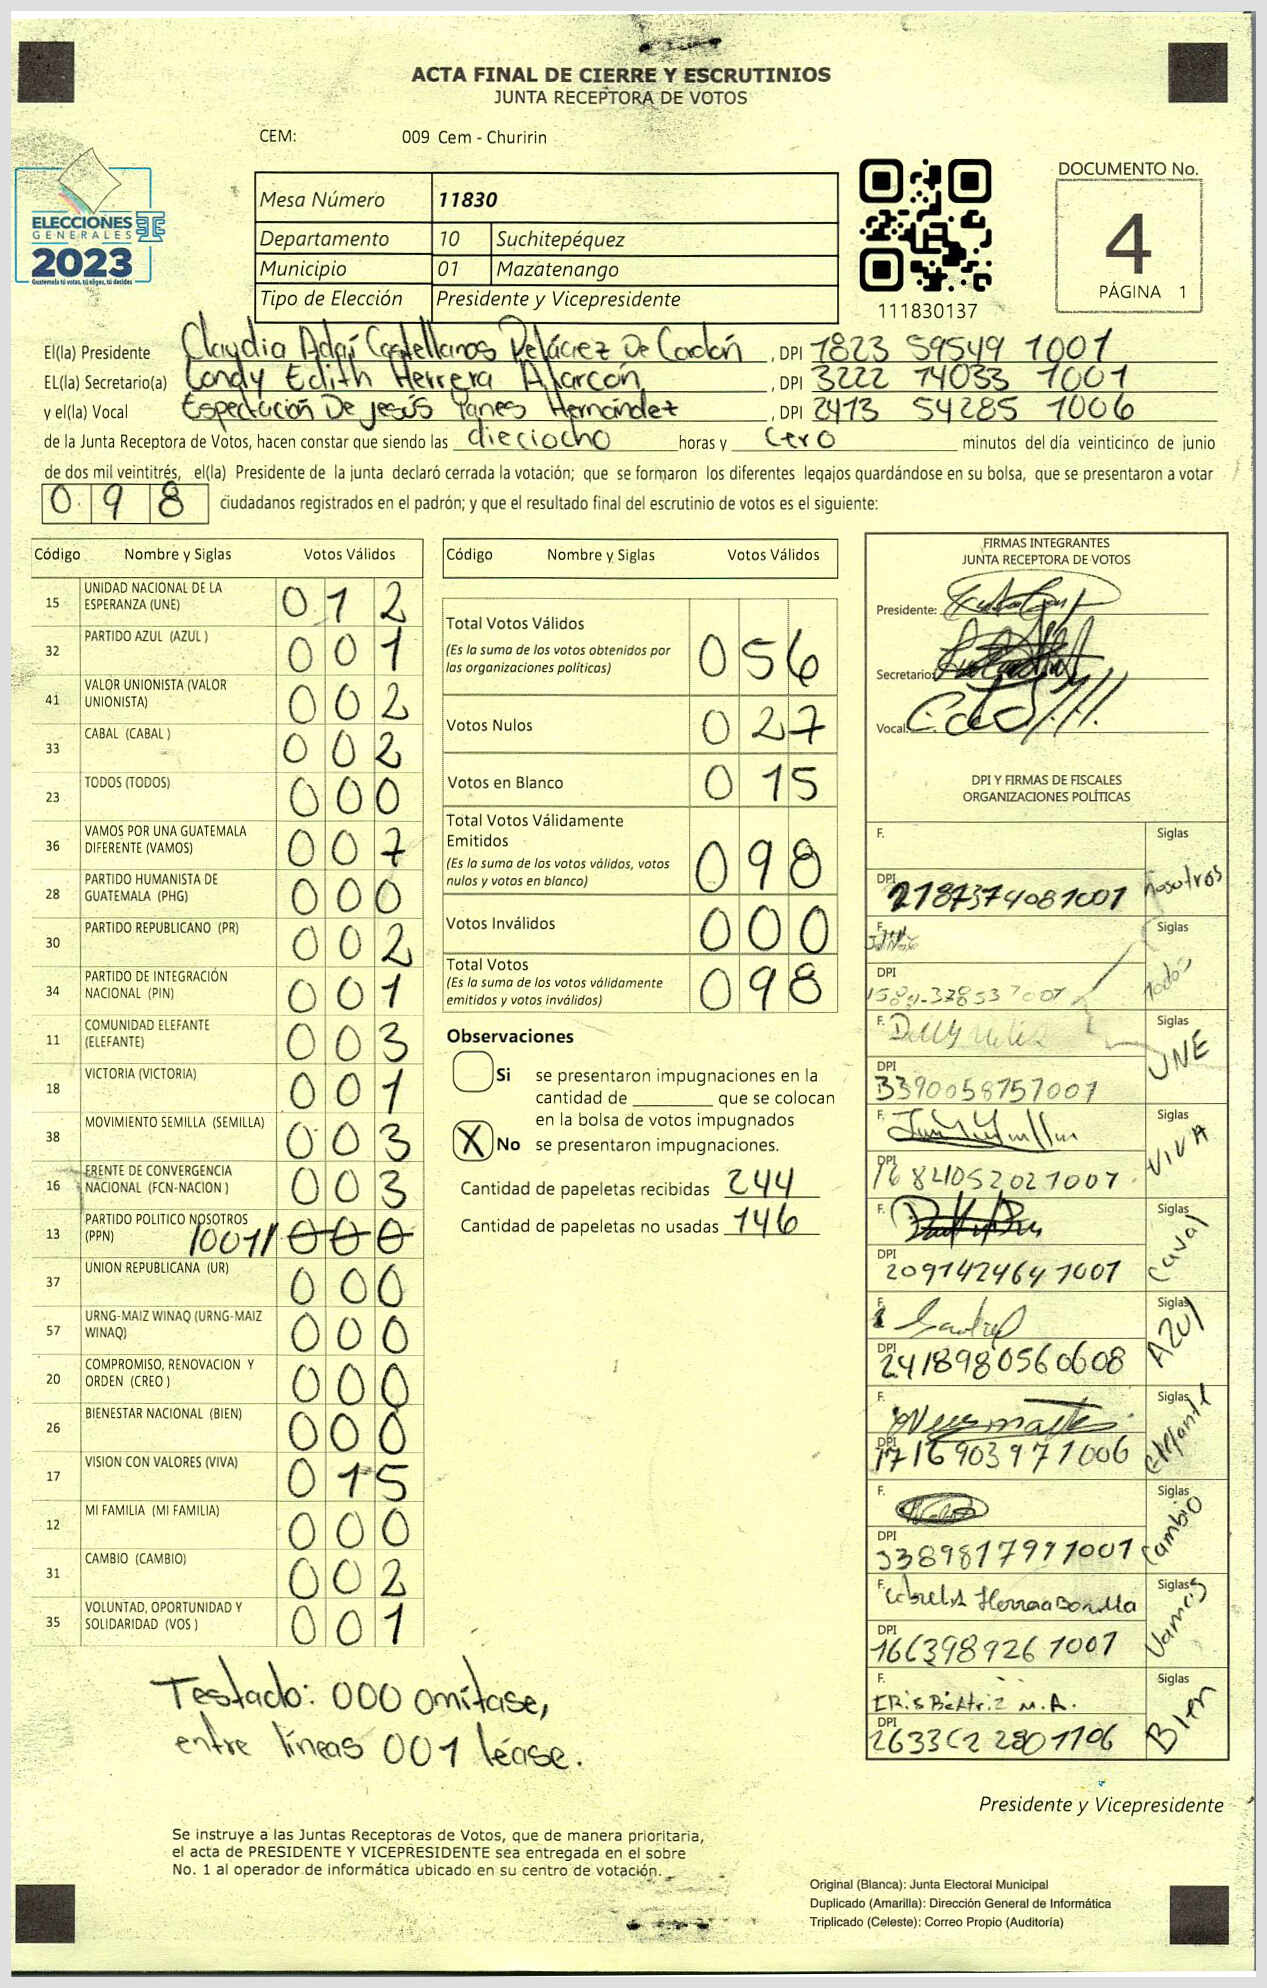 ACTA FINAL DE CIERRE Y ESCRUTINIOS
JUNTA RECEPTORA DE VOTOS
CEM: 009 Cem - Churirin
ELECCIONES
GENERALES
2023
Guatemala tú votas, tú eliges, tú decides
Mesa Número 11830
Departamento 10 Suchitepéquez
Municipio 01 Mazatenango
Tipo de Elección Presidente y Vicepresidente
111830137
DOCUMENTO No.
4
PÁGINA 1
El(la) Presidente Claudia Adaí Castellanos Peláez De Cardón, DPI 1823 59549 1001
EL(la) Secretario(a) Londy Edith Herrera Alarcón, DPI 3222 14033 1001
y el(la) Vocal Espectación De Jesús Yanes Hernández, DPI 2413 54285 1006
de la Junta Receptora de Votos, hacen constar que siendo las dieciocho horas y cero minutos del día veinticinco de junio
de dos mil veintitrés, el(la) Presidente de la junta declaró cerrada la votación; que se formaron los diferentes legajos guardándose en su bolsa, que se presentaron a votar
098 ciudadanos registrados en el padrón; y que el resultado final del escrutinio de votos es el siguiente:
Código Nombre y Siglas Votos Válidos
15 UNIDAD NACIONAL DE LA ESPERANZA (UNE) 012
32 PARTIDO AZUL (AZUL ) 001
41 VALOR UNIONISTA (VALOR UNIONISTA) 002
33 CABAL (CABAL ) 002
23 TODOS (TODOS) 000
36 VAMOS POR UNA GUATEMALA DIFERENTE (VAMOS) 007
28 PARTIDO HUMANISTA DE GUATEMALA (PHG) 000
30 PARTIDO REPUBLICANO (PR) 002
34 PARTIDO DE INTEGRACIÓN NACIONAL (PIN) 001
11 COMUNIDAD ELEFANTE (ELEFANTE) 003
18 VICTORIA (VICTORIA) 001
38 MOVIMIENTO SEMILLA (SEMILLA) 003
16 FRENTE DE CONVERGENCIA NACIONAL (FCN-NACION ) 003
13 PARTIDO POLITICO NOSOTROS (PPN) /001/ 000
37 UNION REPUBLICANA (UR) 000
57 URNG-MAIZ WINAQ (URNG-MAIZ WINAQ) 000
20 COMPROMISO, RENOVACION Y ORDEN (CREO ) 000
26 BIENESTAR NACIONAL (BIEN) 000
17 VISION CON VALORES (VIVA) 015
12 MI FAMILIA (MI FAMILIA) 000
31 CAMBIO (CAMBIO) 002
35 VOLUNTAD, OPORTUNIDAD Y SOLIDARIDAD (VOS ) 001
Testado: 000 omítase,
entre líneas 001 léase.
Código Nombre y Siglas Votos Válidos
Total Votos Válidos 056
(Es la suma de los votos obtenidos por
las organizaciones políticas)
Votos Nulos 027
Votos en Blanco 015
Total Votos Válidamente
Emitidos 098
(Es la suma de los votos válidos, votos
nulos y votos en blanco)
Votos Inválidos 000
Total Votos 098
(Es la suma de los votos válidamente
emitidos y votos inválidos)
Observaciones
Si se presentaron impugnaciones en la
cantidad de ________ que se colocan
en la bolsa de votos impugnados
X No se presentaron impugnaciones.
Cantidad de papeletas recibidas 244
Cantidad de papeletas no usadas 146
FIRMAS INTEGRANTES
JUNTA RECEPTORA DE VOTOS
Presidente:
Secretario:
Vocal:
DPI Y FIRMAS DE FISCALES
ORGANIZACIONES POLÍTICAS
F. Siglas
DPI 2187374081001 nosotros
F. Siglas
DPI Todos
F. Siglas
DPI 3390058757001 UNE
F. Siglas
DPI 16841052021001 VIVA
F. Siglas
DPI 2091424641001 Caval
F. Siglas
DPI 2418980560608 AZUl
F. Siglas
DPI 1716903971006 Elefante
F. Siglas
DPI 3389817991001 Cambio
F. Herrera Bonilla Siglas
DPI 1663989261001 Vamos
F. Iris Beatriz M.A. Siglas
DPI Bien
Presidente y Vicepresidente
Se instruye a las Juntas Receptoras de Votos, que de manera prioritaria,
el acta de PRESIDENTE Y VICEPRESIDENTE sea entregada en el sobre
No. 1 al operador de informática ubicado en su centro de votación.
Original (Blanca): Junta Electoral Municipal
Duplicado (Amarilla): Dirección General de Informática
Triplicado (Celeste): Correo Propio (Auditoría)